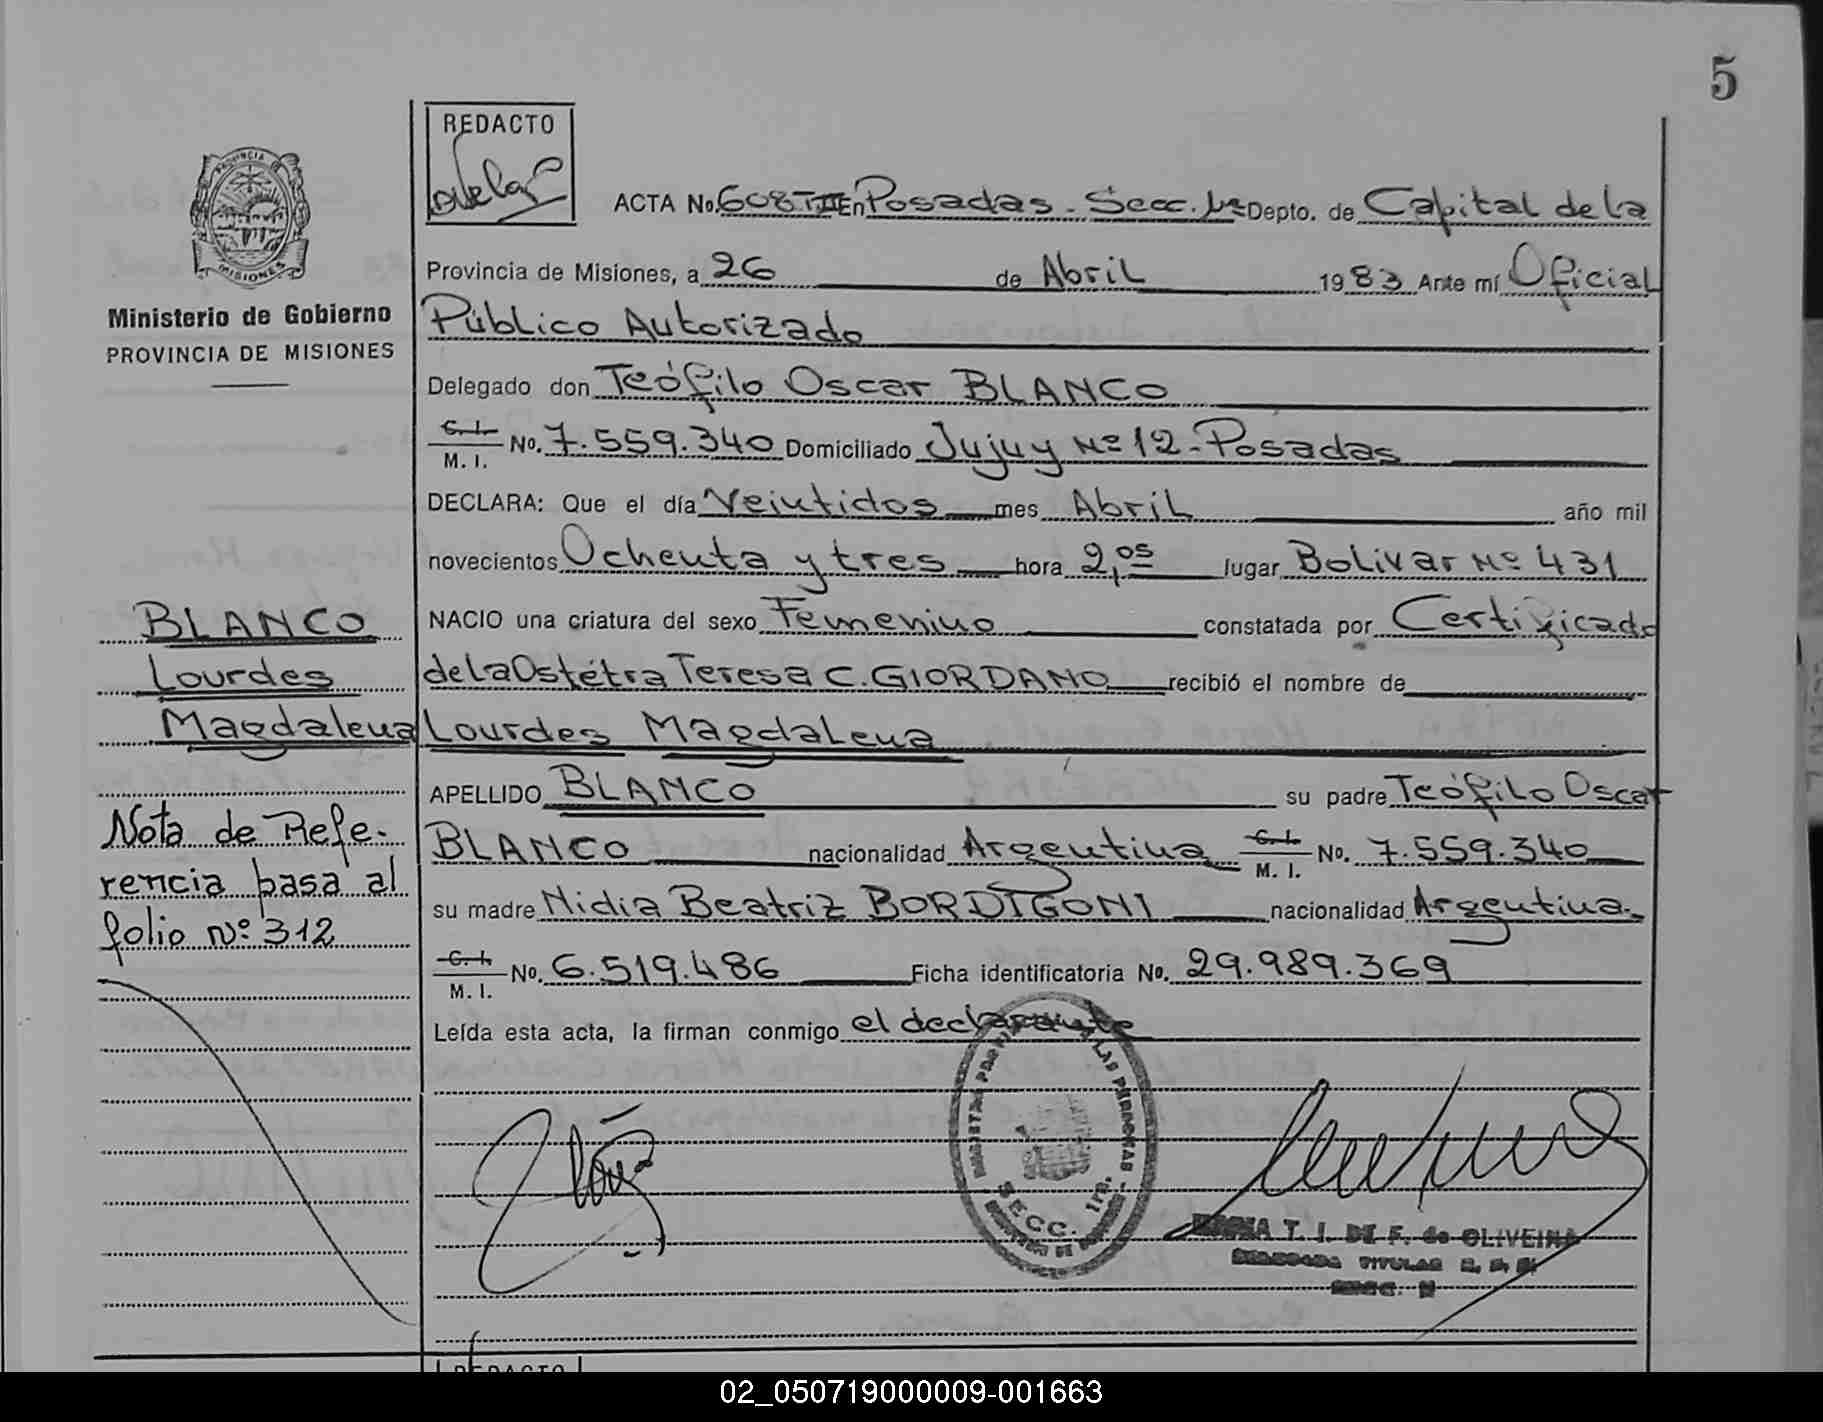 5
REDACTO
PROVINCIA DE
MISIONES
Ministerio de Gobierno
PROVINCIA DE MISIONES
ACTA No. 608 T III En Posadas - Secc. 1ª Depto. de Capital de la
Provincia de Misiones, a 26 de Abril 1983 Ante mí Oficial
Público Autorizado
Delegado don Teófilo Oscar BLANCO
C. I.
M. I. No. 7.559.340 Domiciliado Jujuy Nº 12 - Posadas
DECLARA: Que el día Veintidos mes Abril año mil
novecientos Ochenta y tres hora 2,05 lugar Bolivar Nº 431
NACIO una criatura del sexo Femenino constatada por Certificado
de la Ostétra Teresa C. GIORDANO recibió el nombre de
Lourdes Magdalena
APELLIDO BLANCO su padre Teófilo Oscar
BLANCO nacionalidad Argentina C. I.
M. I. No. 7.559.340
su madre Nidia Beatriz BORDIGONI nacionalidad Argentina.
C. I.
M. I. No. 6.519.486 Ficha identificatoria No. 29.989.369
Leída esta acta, la firman conmigo el declarante
BLANCO
Lourdes
Magdalena
Nota de Refe-
rencia basa al
folio Nº 312
LAS PERSONAS
SECC. 1ra.
T. I. DE F. de OLIVEIRA
TITULAR
SECC.
REDACTO
02_050719000009-001663